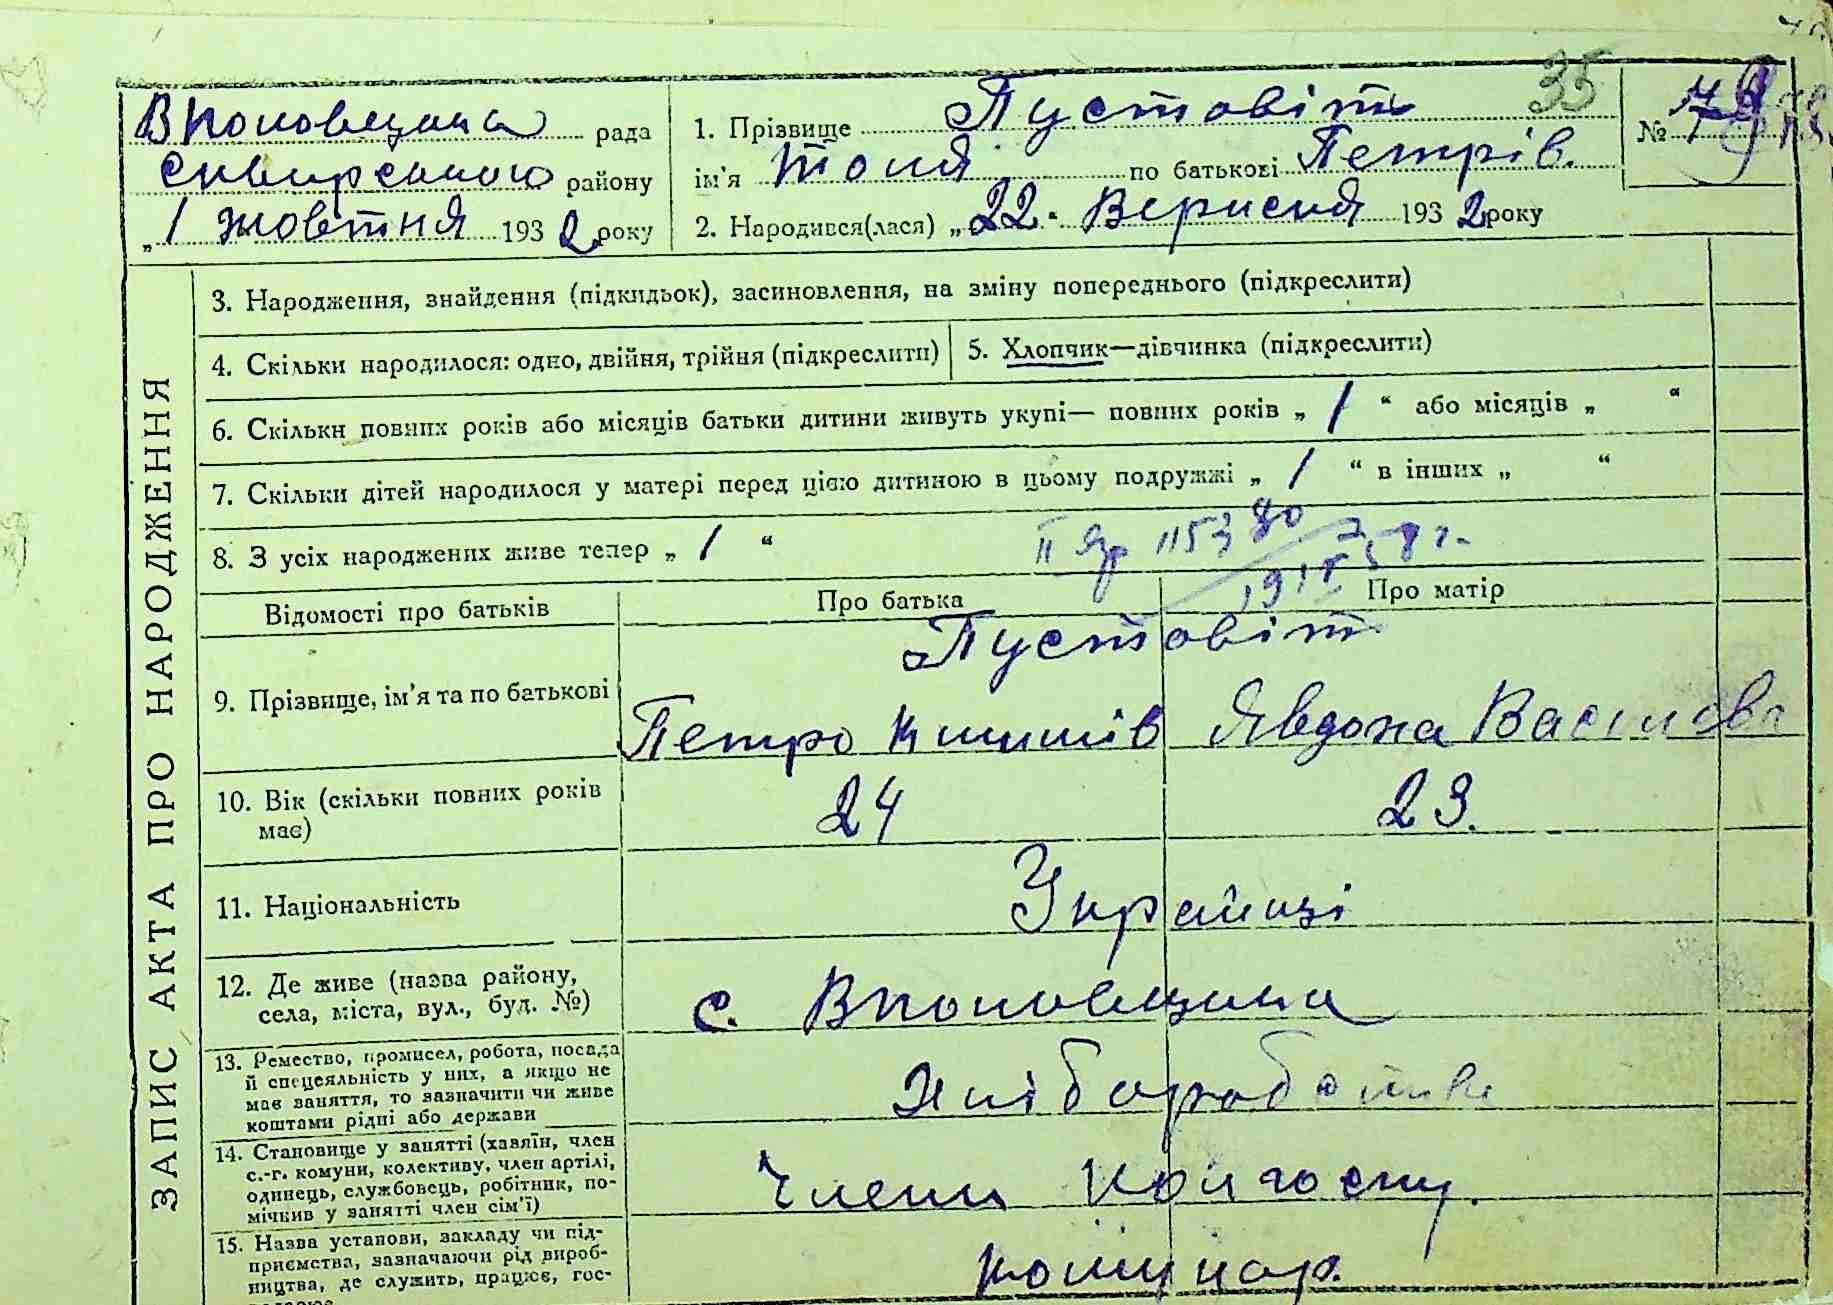 35
Вполовецька рада
Сквирського району
„ 1 жовтня 1932 року
1. Прізвище Пустовіт
ім'я Толя по батькові Петрів.
2. Народився(лася) „ 22 " Вересня 1932 року
№
3. Народження, знайдення (підкидьок), засиновлення, на зміну попереднього (підкреслити)
4. Скільки народилося: одно, двійня, трійня (підкреслити)
5. Хлопчик—дівчинка (підкреслити)
6. Скільки повних років або місяців батьки дитини живуть укупі— повних років „ 1 “ або місяців „ “
7. Скільки дітей народилося у матері перед цією дитиною в цьому подружжі „ 1 “ в інших „ “
8. З усіх народжених живе тепер „ 1 “
Відомості про батьків
Про батька
Про матір
Пустовіт
9. Прізвище, ім'я та по батькові
Петро
Явдоха Василєва
10. Вік (скільки повних років
має)
24
23.
11. Національність
Українці
12. Де живе (назва району,
села, міста, вул., буд. №)
с.
13. Ремество, промисел, робота, посада
й спецеяльність у них, а якщо не
має заняття, то зазначити чи живе
коштами рідні або держави
14. Становище у занятті (хазяїн, член
с.-г. комуни, колективу, член артілі,
одинець, службовець, робітник, по-
мічник у занятті член сім'ї)
Члени Колгоспу.
15. Назва установи, закладу чи під-
приємства, зазначаючи рід вироб-
ництва, де служить, працює, гос-
ЗАПИС АКТА ПРО НАРОДЖЕННЯ